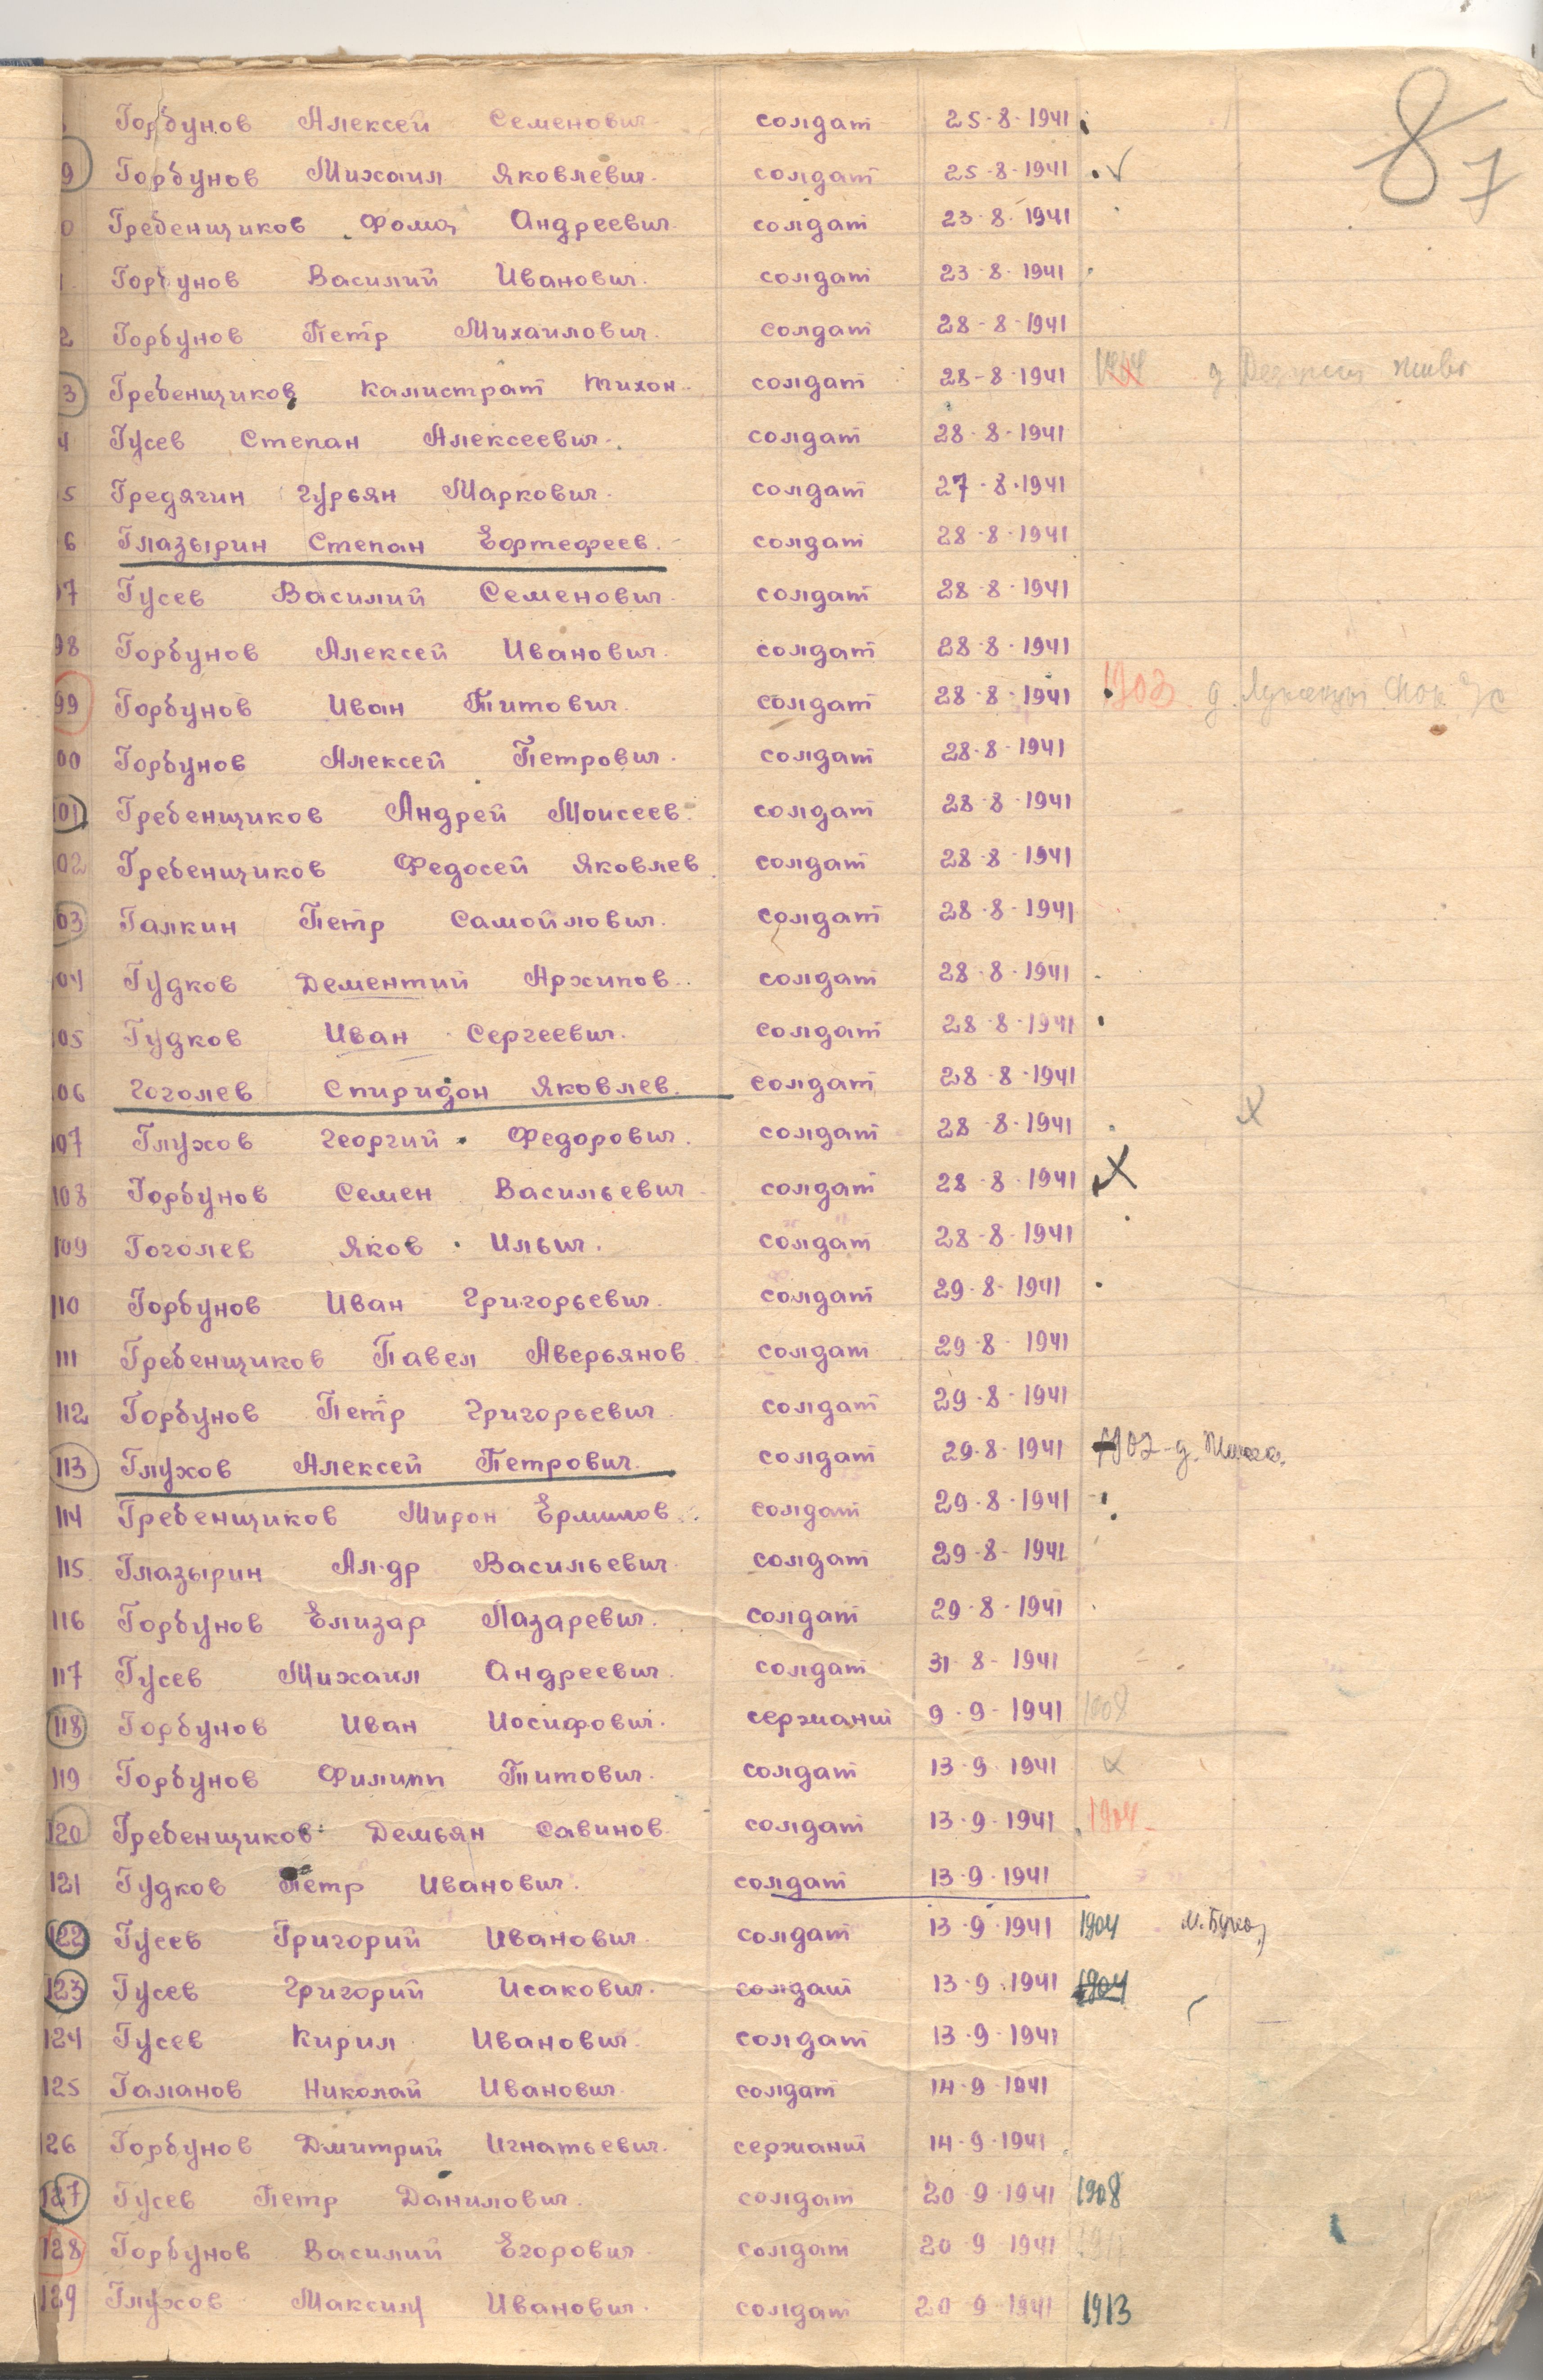 87
Горбунов Алексей Семенович солдат 25-8-1941
9 Горбунов Михаил Яковлевич солдат 25-8-1941
0 Гребенщиков Фома Андреевич солдат 23-8-1941
Горбунов Василий Иванович солдат 23-8-1941
2 Горбунов Петр Михаилович солдат 28-8-1941
3 Гребенщиков Калистрат Тихон. солдат 28-8-1941
4 Гусев Степан Алексеевич солдат 28-8-1941
5 Гредягин Гурьян Маркович солдат 27-8-1941
6 Глазырин Степан Ефртефеев. солдат 28-8-1941
97 Гусев Василий Семенович солдат 28-8-1941
98 Горбунов Алексей Иванович солдат 28-8-1941
99 Горбунов Иван Титович солдат 28-8-1941 1903 д.
00 Горбунов Алексей Петрович солдат 28-8-1941
101 Гребенщиков Андрей Моисеев. солдат 28-8-1941
102 Гребенщиков Федосей Яковлев. солдат 28-8-1941
03 Галкин Петр Самойлович солдат 28-8-1941
104 Гудков Дементий Архипов. солдат 28-8-1941
105 Гудков Иван Сергеевич солдат 28-8-1941
106 Гоголев Спиридон Яковлев. солдат 28-8-1941
107 Глухов Георгий Федорович солдат 28-8-1941
108 Горбунов Семен Васильевич солдат 28-8-1941
109 Гоголев Яков Ильич солдат 28-8-1941
110 Горбунов Иван Григорьевич солдат 29-8-1941
111 Гребенщиков Павел Аверьянов солдат 29-8-1941
112 Горбунов Петр Григорьевич солдат 29-8-1941
113 Глухов Алексей Петрович солдат 29-8-1941 1902-д.
114 Гребенщиков Мирон Ермилов. солдат 29-8-1941
115 Глазырин Ал-др Васильевич солдат 29-8-1941
116 Горбунов Елизар Лазаревич солдат 29-8-1941
117 Гусев Михаил Андреевич солдат 31-8-1941
118 Горбунов Иван Иосифович сержант 9-9-1941 1908
119 Горбунов Филипп Титович солдат 13-9-1941
120 Гребенщиков Демьян Савинов. солдат 13-9-1941 1904
121 Гудков Петр Иванович солдат 13-9-1941
122 Гусев Григорий Иванович солдат 13-9-1941 1904
123 Гусев Григорий Исакович солдат 13-9-1941 1904
124 Гусев Кирил Иванович солдат 13-9-1941
125 Галанов Николай Иванович солдат 14-9-1941
126 Горбунов Дмитрий Игнатьевич сержант 14-9-1941
127 Гусев Петр Данилович солдат 20-9-1941 1908
128 Горбунов Василий Егорович солдат 20-9-1941
129 Глухов Максим Иванович солдат 20-9-1941 1913